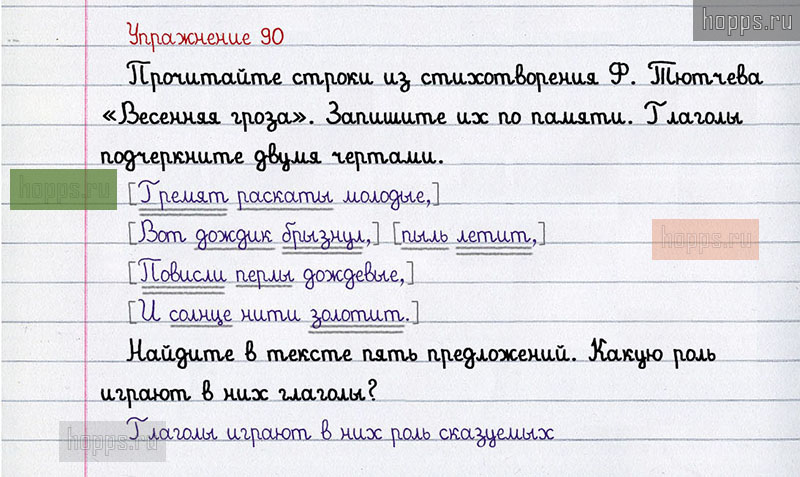 hopps.ru
Упражнение 90
Прочитайте строки из стихотворения Ф. Тютчева
«Весенняя гроза». Запишите их по памяти. Глаголы
подчеркните двумя чертами.
hopps.ru
[Гремят раскаты молодые,]
[Вот дождик брызнул,] [пыль летит,]
hopps.ru
[Повисли перлы дождевые,]
[И солнце нити золотит.]
Найдите в тексте пять предложений. Какую роль
играют в них глаголы?
Глаголы играют в них роль сказуемых
hopps.ru